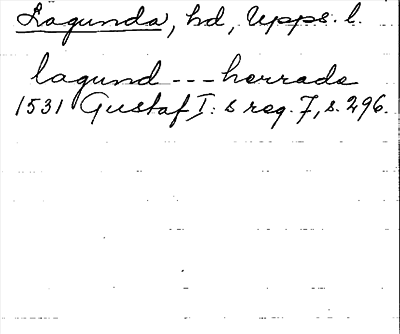 Lagunda, hd, Upps. l.
lagund --- herrade
1531 Gustaf I:s reg. 7, s. 296.